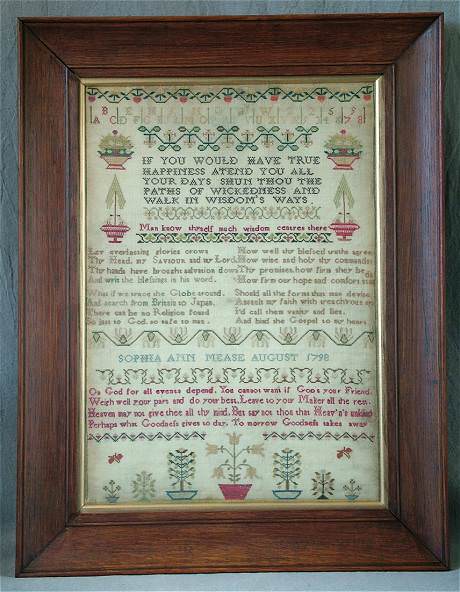 IF YOU WOULD HAVE TRUE
HAPPINESS ATEND YOU ALL
YOUR DAYS SHUN THOU THE
PATHS OF WICKEDNESS AND
WALK IN WISDOM'S WAYS
Man know thyself much wisdom centres there
Let everlasting glories crown
Thy Head, my Saviour and my Lord
Thy hands have brought salvation down
And writ the blessings in his word.
What if we trace the Globe around
And search from Britain to Japan,
There can be no Religion found
So just to God, so safe to man.
How well thy blessed truths agree
How wise and holy thy commands
Thy promises, how firm they be
How firm our hope and comfort
Should all the forms that men devise
Assault my faith with treach'rous art
I'd call them vanity and lies,
And bind the Gospel to my heart
SOPHIA ANN MEASE AUGUST 1798
On God for all events depend, You cannot want if God's your Friend.
Weigh well your part and do your best, Leave to your Maker all the rest.
Heaven may not give thee all thy mind, But say not thou that Heav'n's unkind
Perhaps what Goodness gives to day, To morrow Goodness takes away